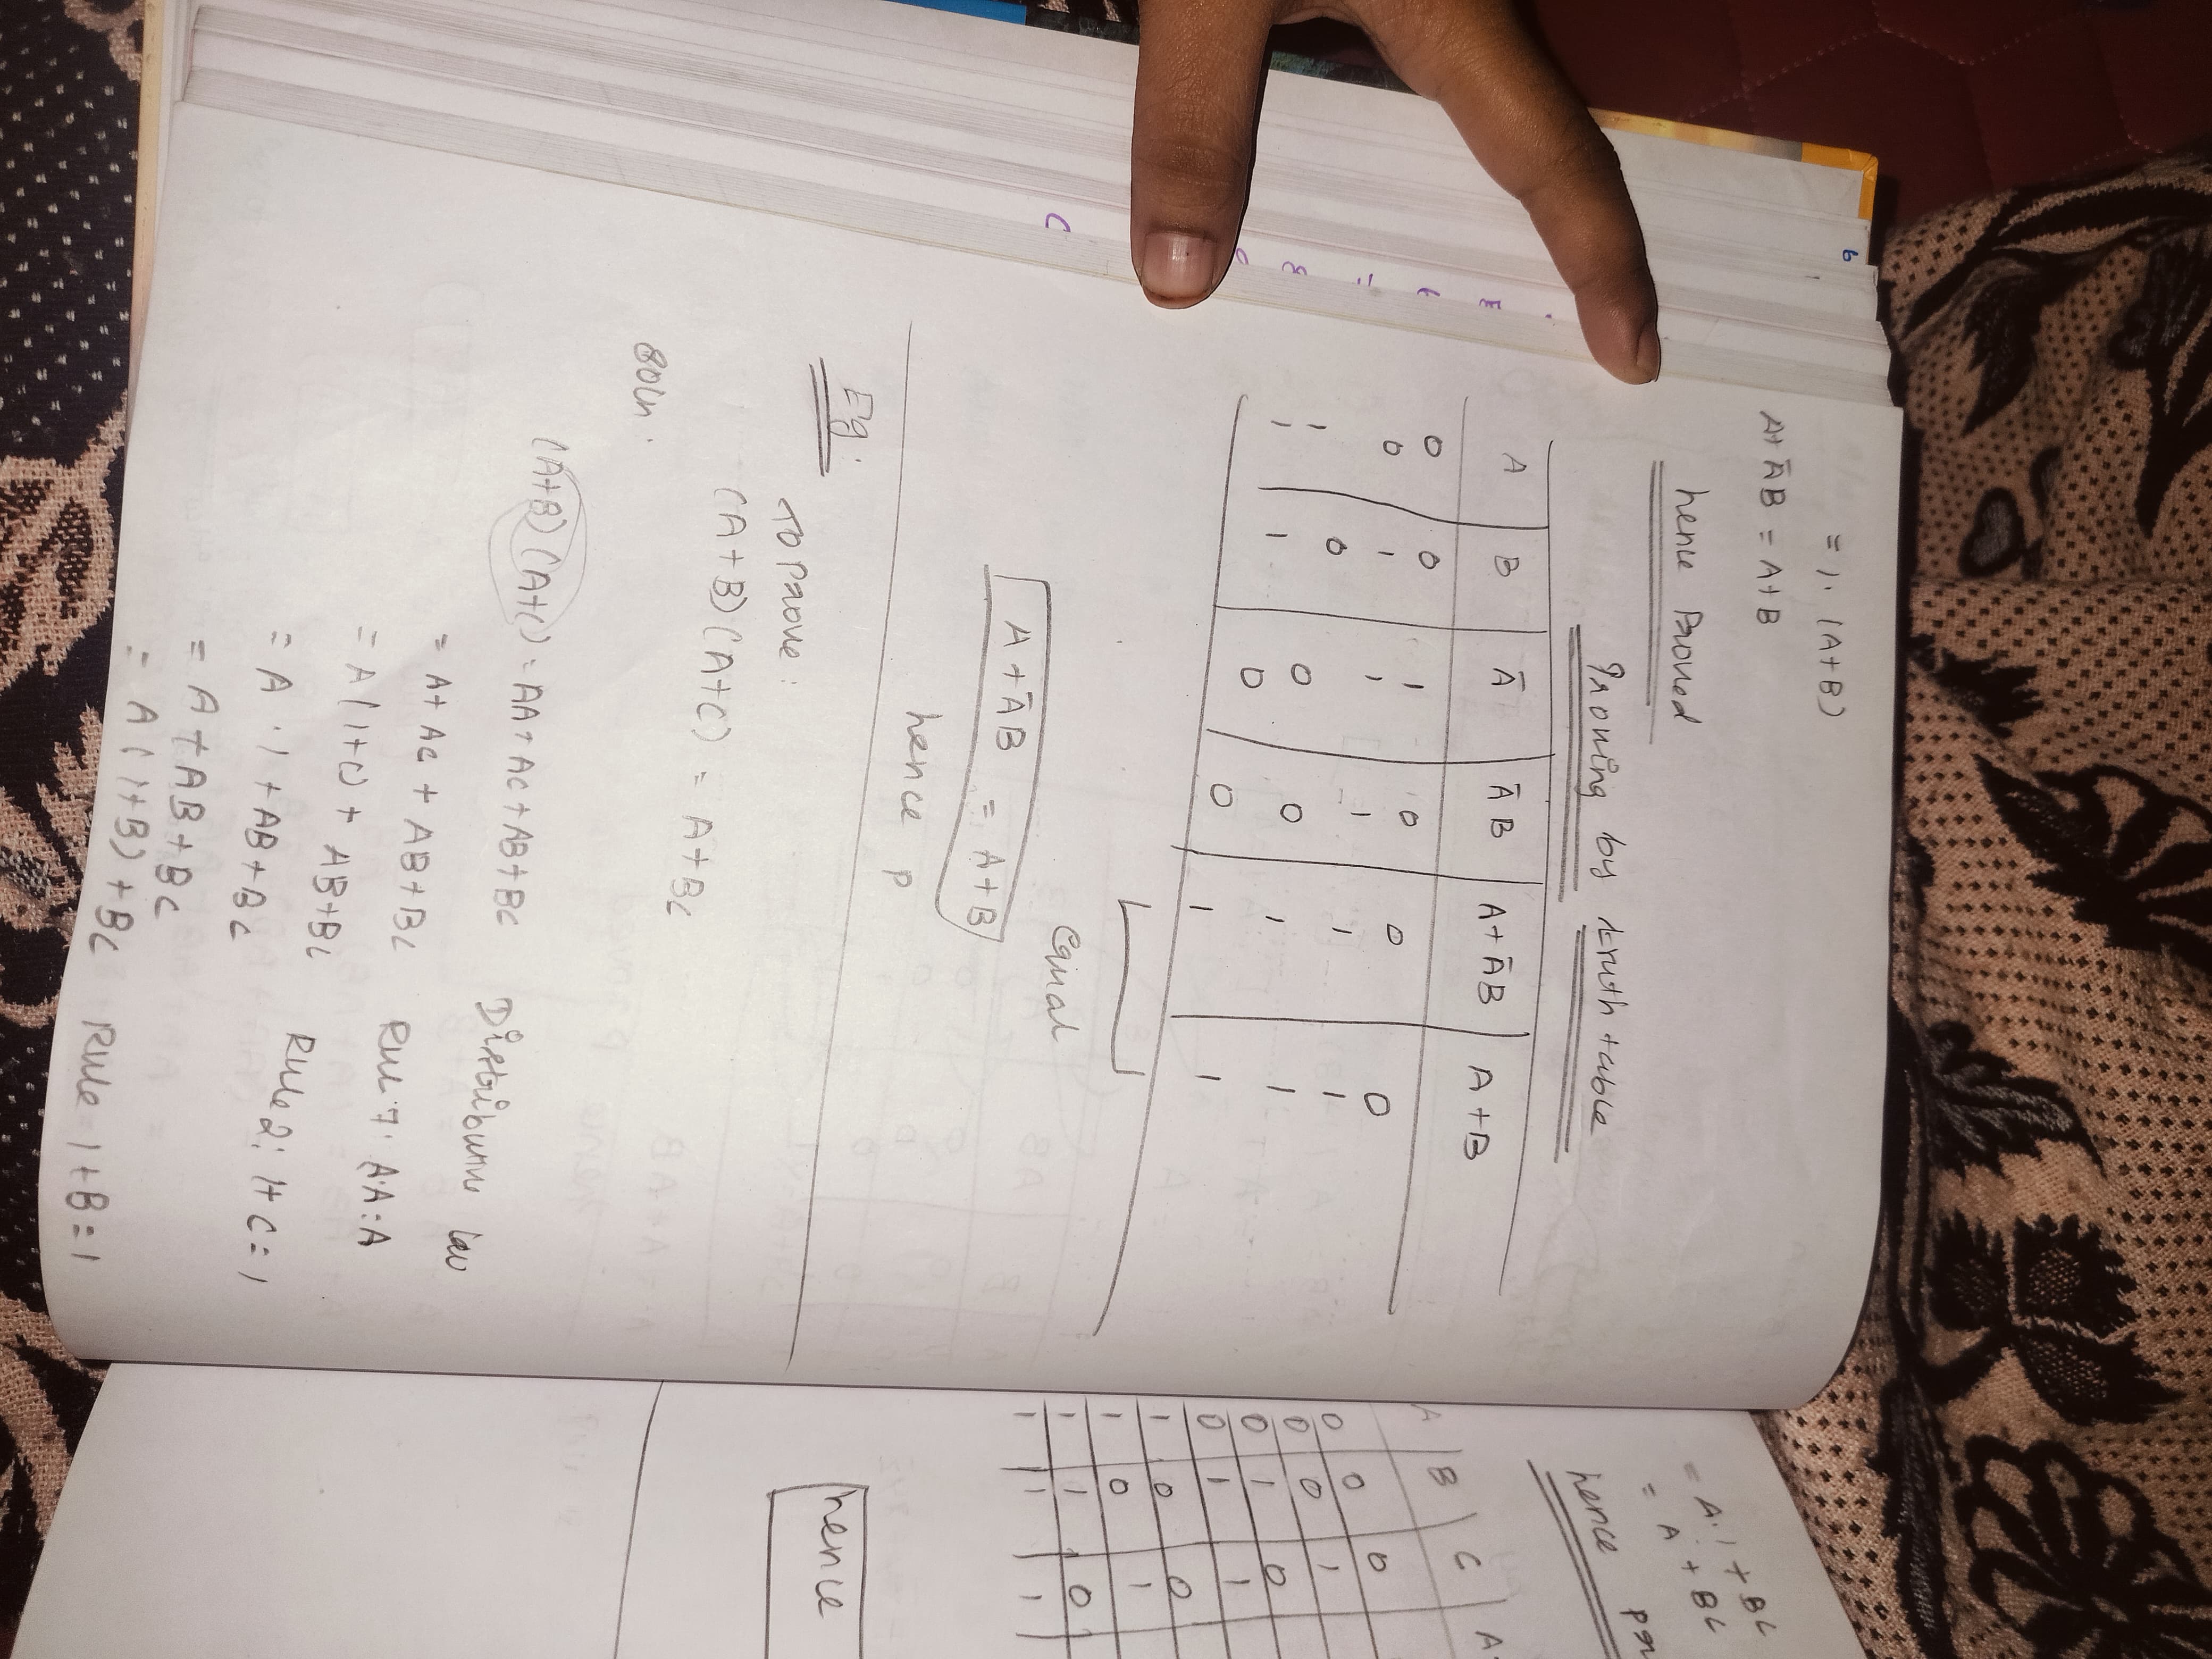 = 1. (A+B)
A+ĀB = A+B
hence Proved
Proving by truth table
A B Ā ĀB A+ĀB A+B
0 0 1 0 0 0
0 1 1 1 1 1
1 0 0 0 1 1
1 1 0 0 1 1
Equal
A+ĀB = A+B
hence p
Eg.
TO Prove :
(A+B)(A+C) = A+BC
Soln.
(A+B)(A+C) = AA+AC+AB+BC Distributive law
= A+AC+AB+BC Rule 7: A.A=A
= A(1+C)+AB+BC Rule 2: 1+C=1
= A.1+AB+BC
= A+AB+BC
= A(1+B)+BC Rule 1+B=1
= A.1+BC
= A+BC
hence
A B C
0 0 0
0 0 1
0 1 0
0 1 1
1 0 0
1 0 1
1 1 0
1 1 1
hence